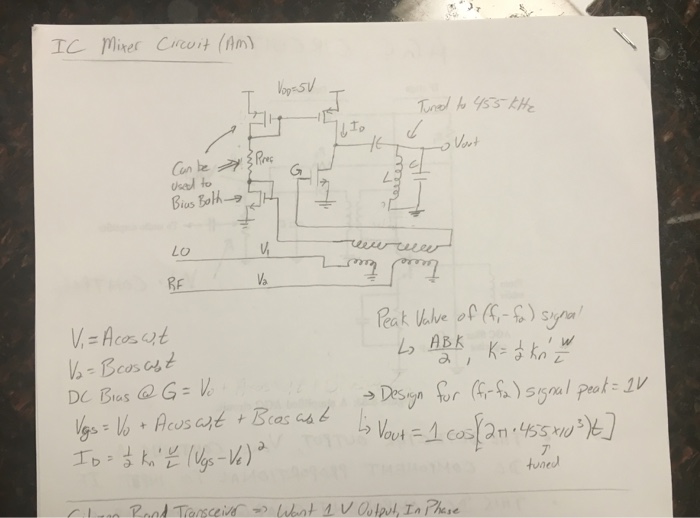 IC Mixer Circuit (Am)
VDD=5V
Tuned to 455 kHz
ID
Vout
Can be
used to
Bias Both
G
L
C
LO V₁
RF V₂
V₁ = Acosω₁t
V₂ = Bcosω₂t
DC Bias @ G = V₀
Vgs = V₀ + Acosω₁t + Bcosω₂t
ID = ½ kn' W/L (Vgs-Vt)²
Peak Value of (f₁-f₂) signal
↳ ABK/2, K = ½ kn' W/L
→ Design for (f₁-f₂) signal peak = 1V
↳ Vout = 1 cos[2π·455x10³)t]
↑
tuned
Band Transceiver => Want 1 V Output, In Phase